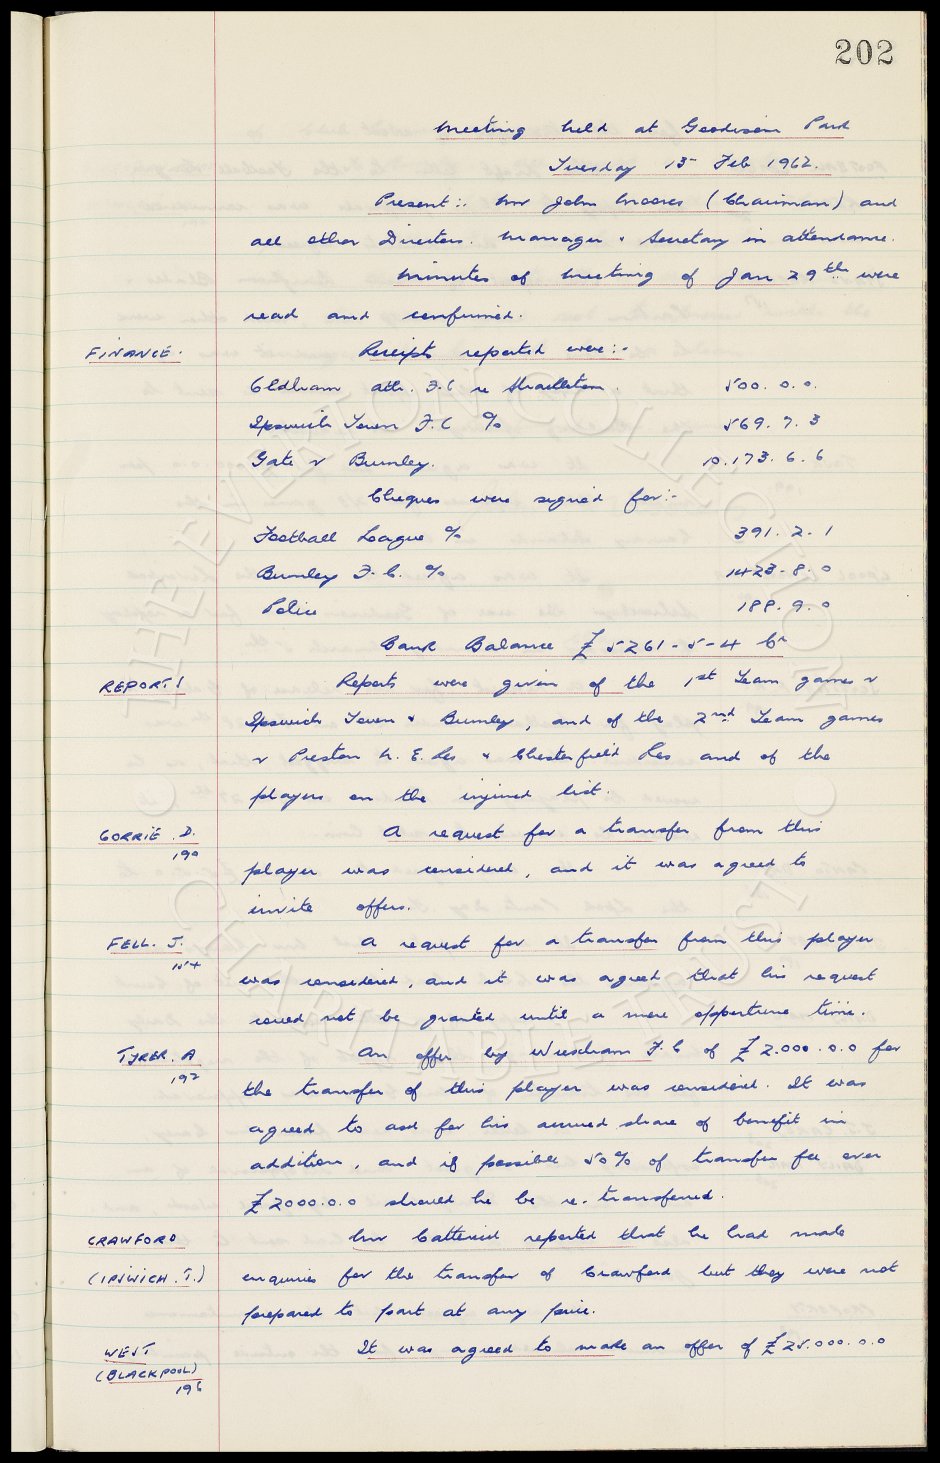 202
Meeting held at Goodison Park
Tuesday 13 Feb 1962.
Present :. Mr John Moores (Chairman) and
all other Directors. Manager & Secretary in attendance.
Minutes of Meeting of Jan 29th were
read and confirmed.
FINANCE. Receipts reported were :-
Oldham Ath. F.C re 500. 0. 0.
Ipswich Town F.C % 569. 7. 3
Gate v Burnley. 10.173. 6. 6
Cheques were signed for :-
Football League % 391. 2. 1
Burnley F.C. % 1423. 8. 0
Police 188. 9. 0
Bank Balance £5261-5-4 Cr
REPORTS Reports were given of the 1st Team games v
Ipswich Town & Burnley, and of the 2nd Team games
v Preston N. E. Res & Chesterfield Res and of the
players on the injured list.
GORRIE. D. A request for a transfer from this
190
player was considered, and it was agreed to
invite offers.
FELL. J. A request for a transfer from this player
154
was considered, and it was agreed that his request
could not be granted until a more opportune time.
TYRER. A An offer by Wrexham F.C of £2.000.0.0 for
192
the transfer of this player was considered. It was
agreed to ask for his accrued share of benefit in
addition, and if possible 50% of transfer fee over
£2000.0.0 should he be re-transferred.
CRAWFORD Mr Catterick reported that he had made
(IPSWICH. T.) enquiries for the transfer of Crawford but they were not
prepared to part at any price.
WEST It was agreed to make an offer of £25.000.0.0
(BLACKPOOL)
196
THE EVERTON COLLECTION
CHARITABLE TRUST